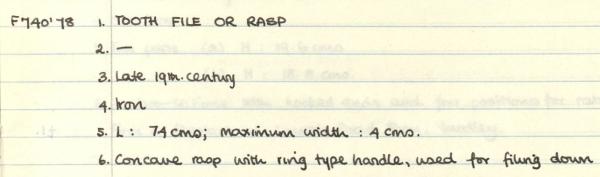 F740'78 1. TOOTH FILE OR RASP
2. —
3. Late 19th. century
4. Iron
5. L : 74 cms; maximum width : 4 cms.
6. Concave rasp with ring type handle, used for filing down